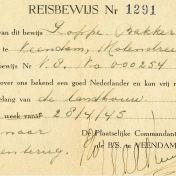 REISBEWIJS Nr 1291
an dit bewijs Foppe Bakker
te Veendam, Molenstreek
bewijs No V.D. Va 000254
over ons bekend een goed Nederlander en kan vrij r
elang van de landbouw
week vanaf 28/4/45
naar
en terug.
De Plaatselijke Commandant
de B/S. te VEENDAM